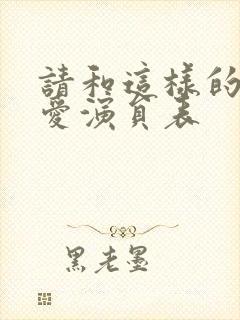 請和這樣的
愛演員表
黑老墨